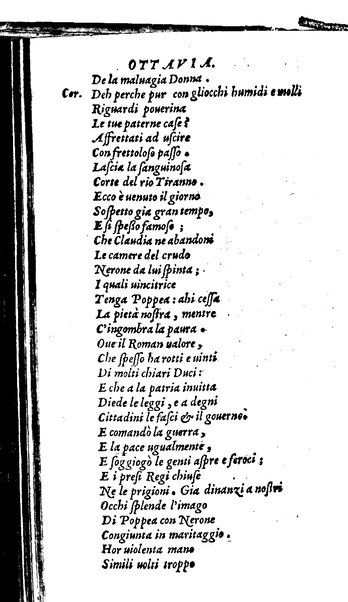 OTTAVIA.
De la maluagia Donna.
Cor. Deh perche pur con gliocchi humidi e molli
Riguardi pouerina
Le tue paterne case?
Affrettati ad uscire
Con frettoloso passo.
Lascia la sanguinosa
Corte del rio Tiranno.
Ecco è uenuto il giorno
Sospetto gia gran tempo,
E si spesso famoso;
Che Claudia ne abandoni
Le camere del crudo
Nerone da lui spinta;
I quali uincitrice
Tenga Poppea: ahi cessa
La pietà nostra, mentre
C'ingombra la paura.
Oue il Roman ualore,
Che spesso ha rotti e uinti
Di molti chiari Duci:
E che a la patria inuitta
Diede le leggi, e a degni
Cittadini le fasci & il gouerno.
E comandò la guerra,
E la pace ugualmente,
E soggiogò le genti aspre e feroci;
E i presi Regi chiuse
Ne le prigioni. Gia dinanzi a nostri
Occhi splende l'imago
Di Poppea con Nerone
Congiunta in maritaggio.
Hor uiolenta mano
Simili uolti troppo